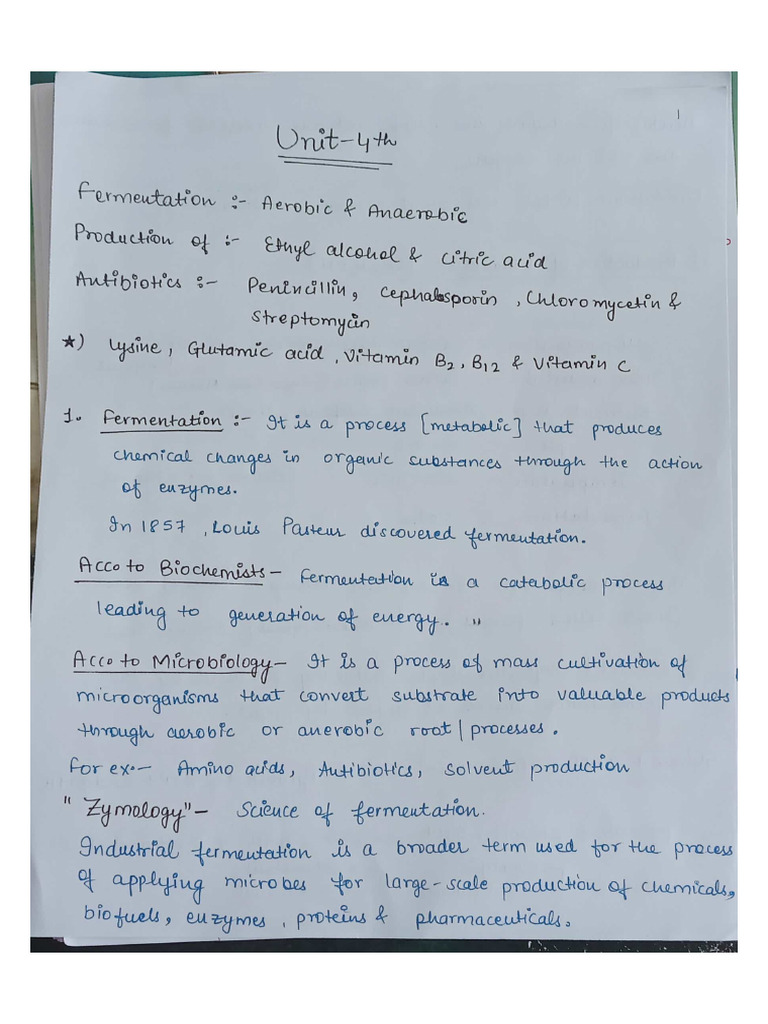 1
Unit-4th
Fermentation :- Aerobic & Anaerobic
Production of :- Ethyl alcohol & citric acid
Antibiotics :- Penincillin, Cephalosporin, Chloromycetin &
Streptomycin
★) Lysine, Glutamic acid, Vitamin B2, B12 & Vitamin C
1. Fermentation :- It is a process [metabolic] that produces
chemical changes in organic substances through the action
of enzymes.
In 1857, Louis Pasteur discovered fermentation.
Acco to Biochemists- Fermentation is a catabolic process
leading to generation of energy. "
Acco to Microbiology- It is a process of mass cultivation of
microorganisms that convert substrate into valuable products
through aerobic or anerobic root/processes.
For ex:- Amino acids, Antibiotics, Solvent production
" Zymology"- Science of fermentation.
Industrial fermentation is a broader term used for the process
of applying microbes for large-scale production of chemicals,
biofuels, enzymes, proteins & pharmaceuticals.